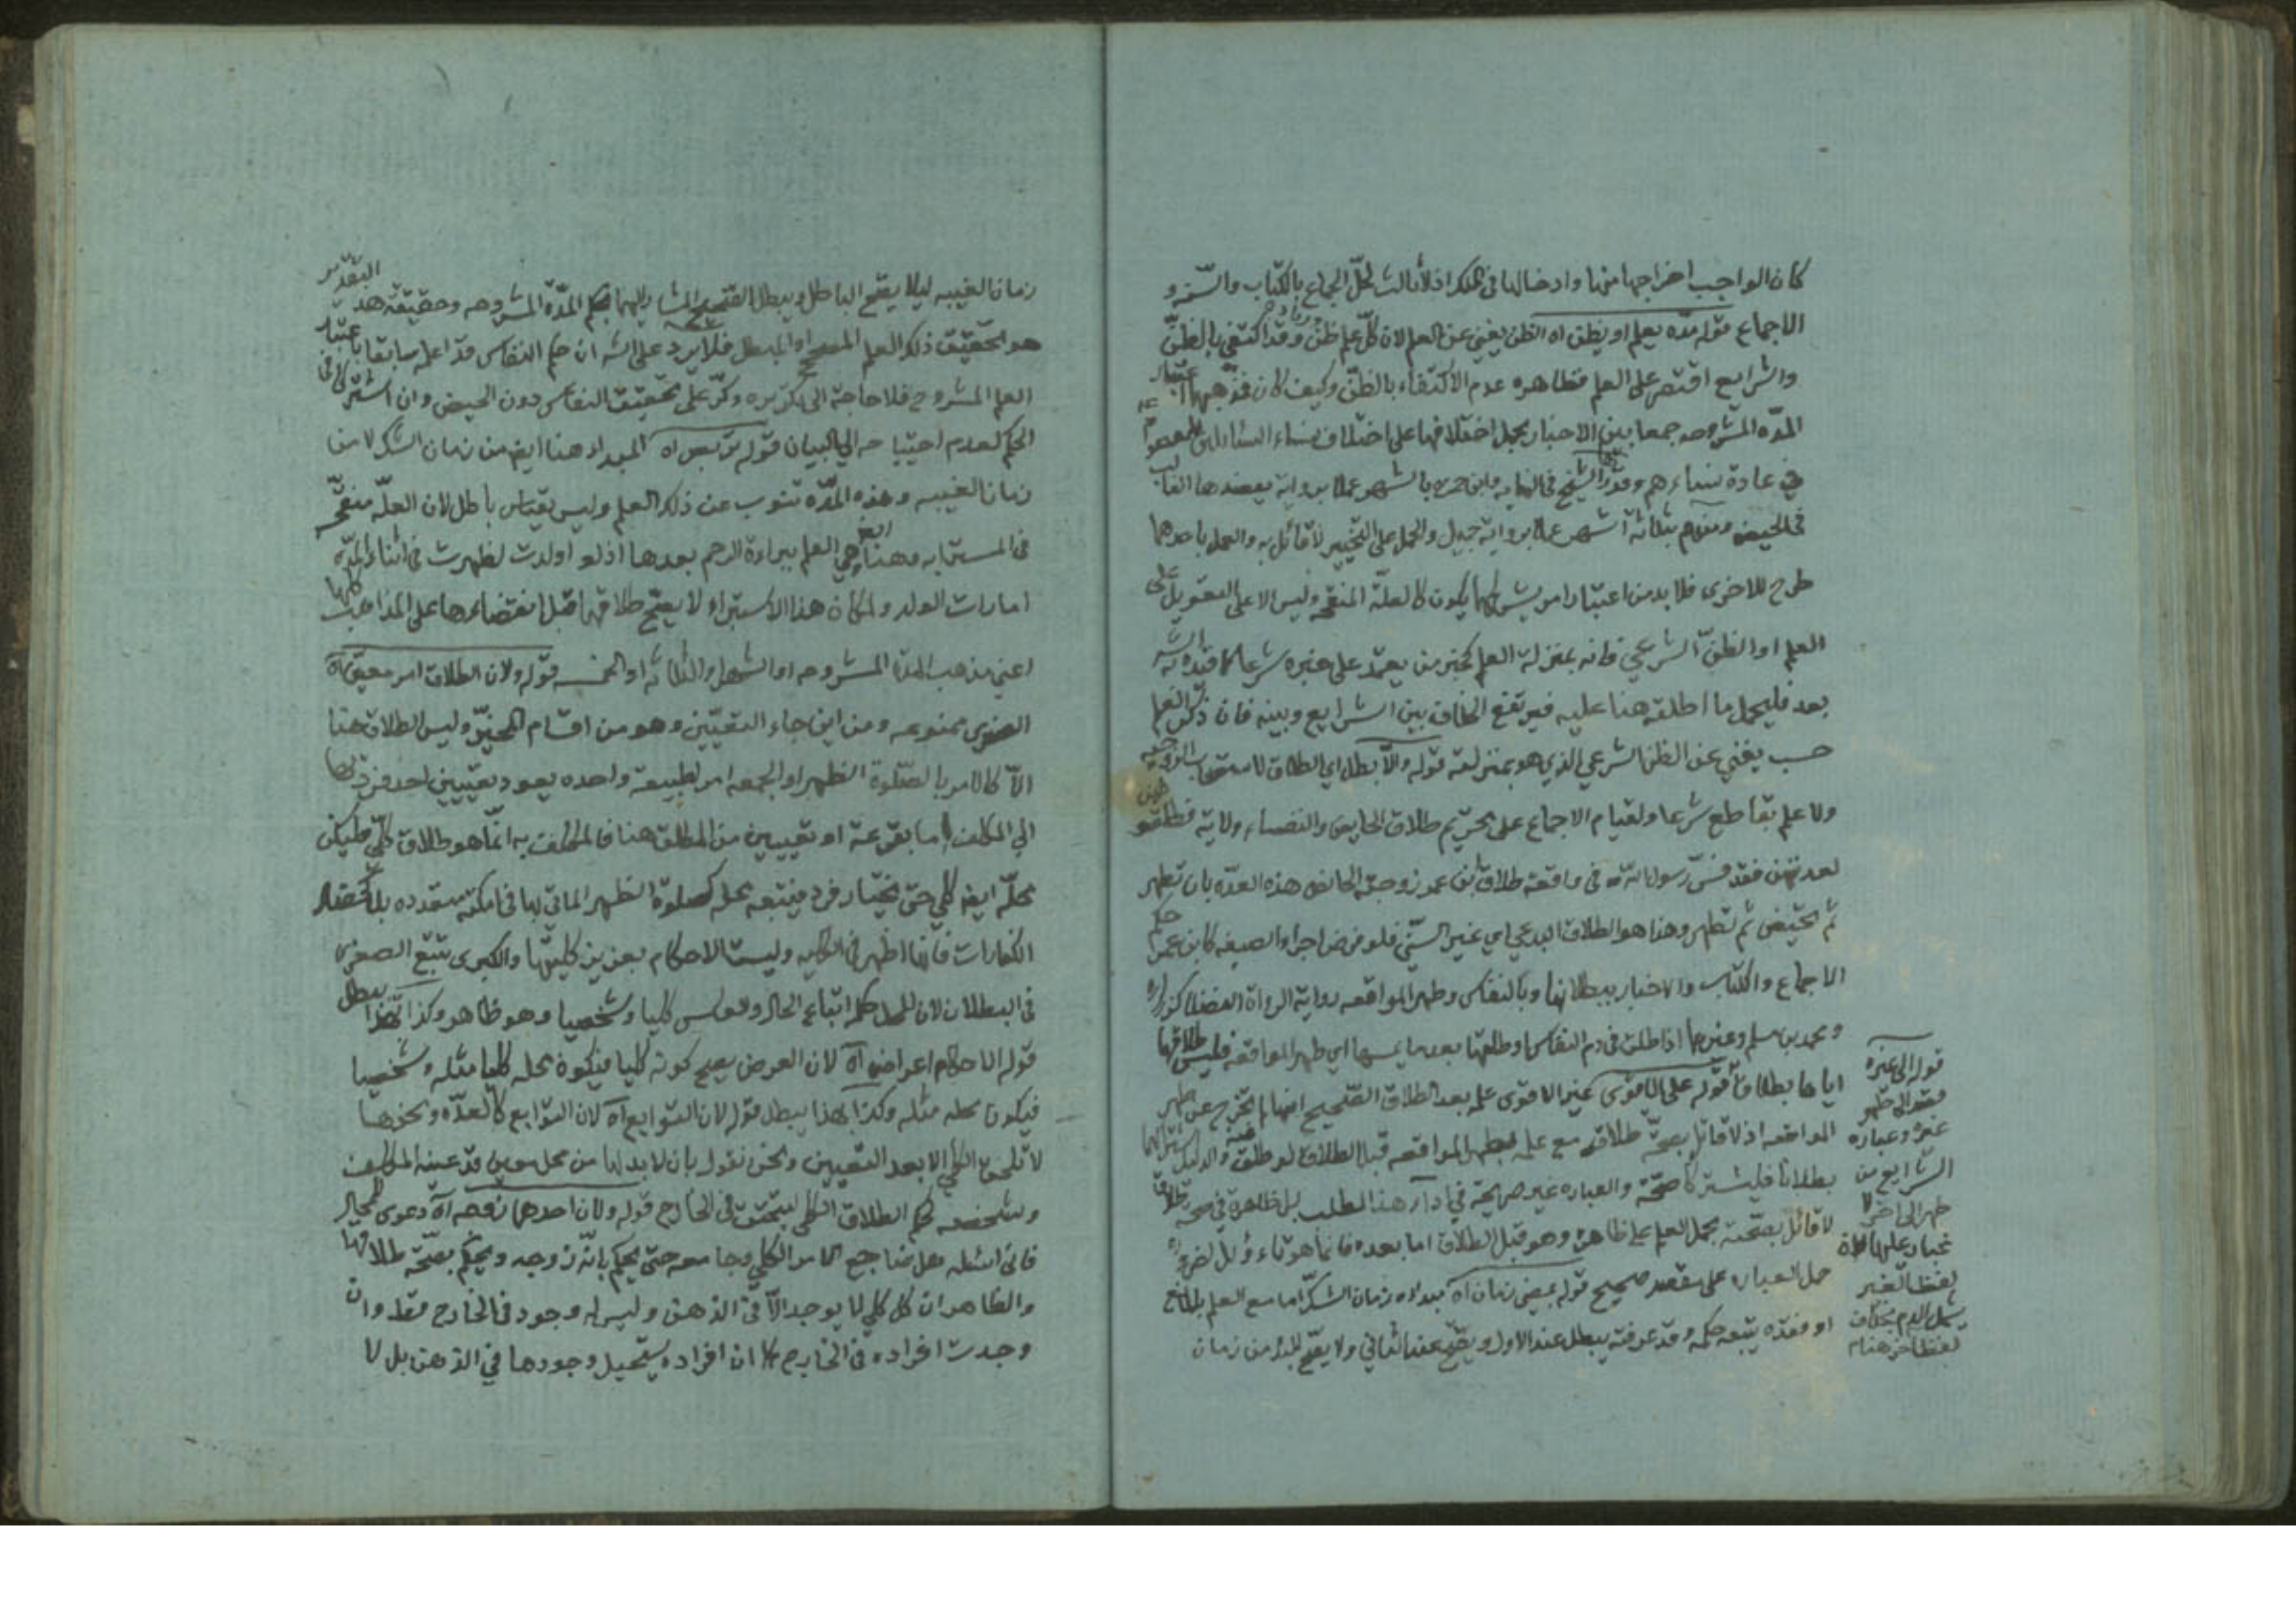 كان الواجب اخراجها منها وادخالها في الملك اذ لا ثالث لحل الجماع بالكتاب والسنه و
الاجماع قوله مده يعلم او يظن اه الظن يغني عن العلم لان كل علم ظن وقد اكتفى بالظن
والشرايع اقتصر على العلم فظاهره عدم الاكتفاء بالظن وكيف كان
المده المشروحه جمعا بين الاخبار بحمل اختلافها على اختلاف نساء السائلين
في عادة نساءهم وقدر الشيخ في النهايه وابن حمزه بالشهر عملا بروايه يعضدها الغالب
في الحيض وبعضهم بثلاثة اشهر عملا برواية جميل والحمل على التخيير لا قائل به والعمل باحدهما
طرح للاخرى فلا بد من اعتبار امر يكون كالعلة المنقحه وليس الا على التعويل على
العلم او الظن الشرعي فانه بمنزلة العلم كخبر من يعتمد على خبره شرعا
بعد فليحمل ما اطلقه هنا عليه فيرتفع الخلاف بين الشرايع وبينه فان ذكر العلم
حسب يغني عن الظن الشرعي الذي هو بمنزلته قوله والا بطل اي الطلاق لاستصحاب الزوجيه
ولا علم بقاطع شرعا ولقيام الاجماع على تحريم طلاق الحايض والنفساء ولاية فطلقوهن
لعدتهن فقد فسر رسول الله في واقعة طلاق ابن عمر زوجته الحائض هذه العده بان تطهر
ثم تحيض ثم تطهر وهذا هو الطلاق البدعي اي غير السني فلو فرض اجراء الصيغه كابن عمر حكم
الاجماع والكتاب والاخبار ببطلانها وبالنفاس وطهر المواقعه رواية الرواة الفضلا كزراره
ومحمد بن مسلم وغيرهما اذا طلق في دم النفاس او طلقها بعد ما يمسها اي طهر المواقعه فليس طلاقها
اياها بطلاق قوله على الاقوى غير الاقوى علم بعد الطلاق الصحيح انها لم تخرج عن طهر
المواقعه اذ لا قائل بصحة طلاقه مع علم بطهر المواقعه قبل الطلاق لو طلق فيه والدليل
بطلانا فليشتركا صحة والعباره غير صريحة في اداء هذا المطلب بل ظاهرة في صحة طلاق
لا قائل بصحته بحمل العلم على ظاهره وهو قبل الطلاق اما بعده فانما هو تاءويل
حمل العباره على مقصد صحيح قوله بمضي زمان اه مبداءه زمان الشك اما مع العلم بالمانع
او فقده يتبعه حكمه وقد عرفته يبطل عند الاول ويصح عند الثاني ولا يصح المبدء من زمان
قوله الى غيره
فقد الى طهر
غيره وعبارة
الشرايع من
طهر الى اخر لا
لفظ الغير
يشمل الدم بخلاف
لفظ اخر هنا
زمان الغيبه ليلا يصح الباطل ويبطل الصحيح المشار اليهما بحكم المدة المشروحه وحقيقة هذا التقدير
هو تحقيق ذلك العلم المصحح او المبطل فلا يرد على الش ان حكم النفاس قد اعلم سابقا باعتبار
العلم المشروح فلا حاجة الى تكريره وكر على تحقيق النفاس دون الحيض وان اشتركا في
الحكم لعدم احتياجه الى البيان قوله تربص اه المبداء هنا ايض من زمان الشك لا من
زمان الغيبه وهذه المدة تنوب عن ذلك العلم وليس بقياس باطل لان العلة منقحه
في المسترابه وهنا ايض هي العلم ببراءة الرحم بعدها اذ لو اولدت لظهرت في اثناء المده
امارات الولد ولمكان هذا الاستبراء لا يصح طلاقها قبل انقضاءها على المذاهب كلها
اعني مذهب المدة المشروحه او الشهر او الثلاثه او الخمسه قوله ولان الطلاق امر معين اه
الصغرى ممنوعه ومن اين جاء التعيين وهو من اقسام المخير وليس الطلاق هنا
الا كالامر بالصلوة الظهر او الجمعه امر لطبيعة واحده يعود تعيين احد فرديها
الى المكلف اما بقرعة او تعيين من المطلق هنا فالمكلف به انما هو طلاق كلي فليكن
محله ايض كلي حتى يختار فرد فيتبعه محله كصلوة الظهر الماتي بها في امكنه متعدده بل كخصال
الكفارات فانها اظهر في الكليه وليست الاحكام بعزيز كليتها والكبرى تتبع الصغرى
في البطلان لان للمحل حكم اتباع الحال وبالعكس كليا وشخصيا وهو ظاهر وكذا بهذا يبطل
قوله الاحكام اعراض اه لان العرض يصح كونه كليا فيكون محله كليا مثله وشخصيا
فيكون محله مثله وكذا بهذا يبطل قوله لان التوابع اه لان التوابع كالعده ونحوها
لا تلحق الكلي الا بعد التعيين ونحن نقول بان لا بد لها من محل معين قد عينه المكلف
وشخصه لحكم الطلاق الكلي ليتحقق في الخارج قوله ولان احدهما زوجه اه دعوى للمحال
فاني اسئله هل ضاجع الامر الكلي وجامعه حتى يحكم بانه زوجه ويحكم بصحة طلاقها
والظاهر ان كل كلي لا يوجد الا في الذهن وليس له وجود في الخارج فقط وان
وجدت افراده في الخارج كما ان افراده يستحيل وجودها في الذهن بل لا